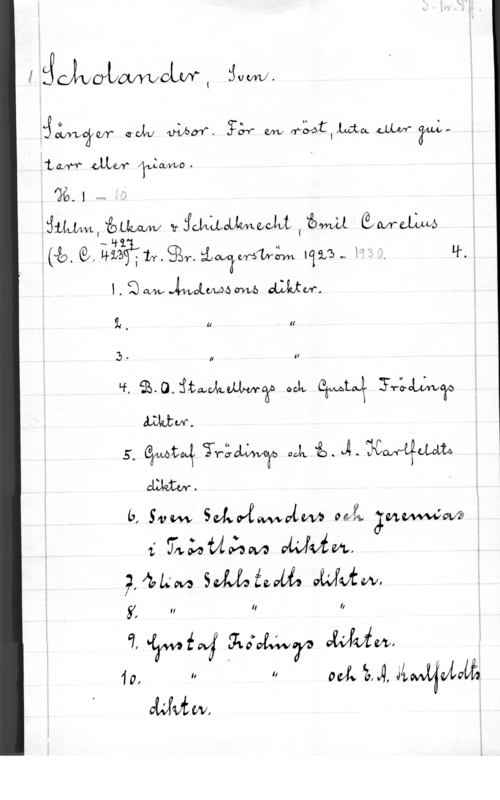 Scholander, Sven.
Sånger och visor. För en röst, luta eller gui-
tarr eller piano.
Hb. 1 - 10
Sthlm, Elkan & Schildknecht, Emil Carelius
(E. C. 4239 - 427; tr. Br. Lagerström 1923 - 1930. 4.
1. Dan Anderssons dikter.
2. " "
3. " "
4. B. O. Stackelbergs och Gustaf Frödings
dikter.
5. Gustaf Frödings och E. A. Karlfeldts
dikter.
6. Sven Scholanders och Jeremias
i Tröstlösas dikter.
7. Elias Sehlstedts dikter.
8. " " "
9. Gustaf Frödings dikter.
10. " " och E. A. Karlfeldts
dikter.